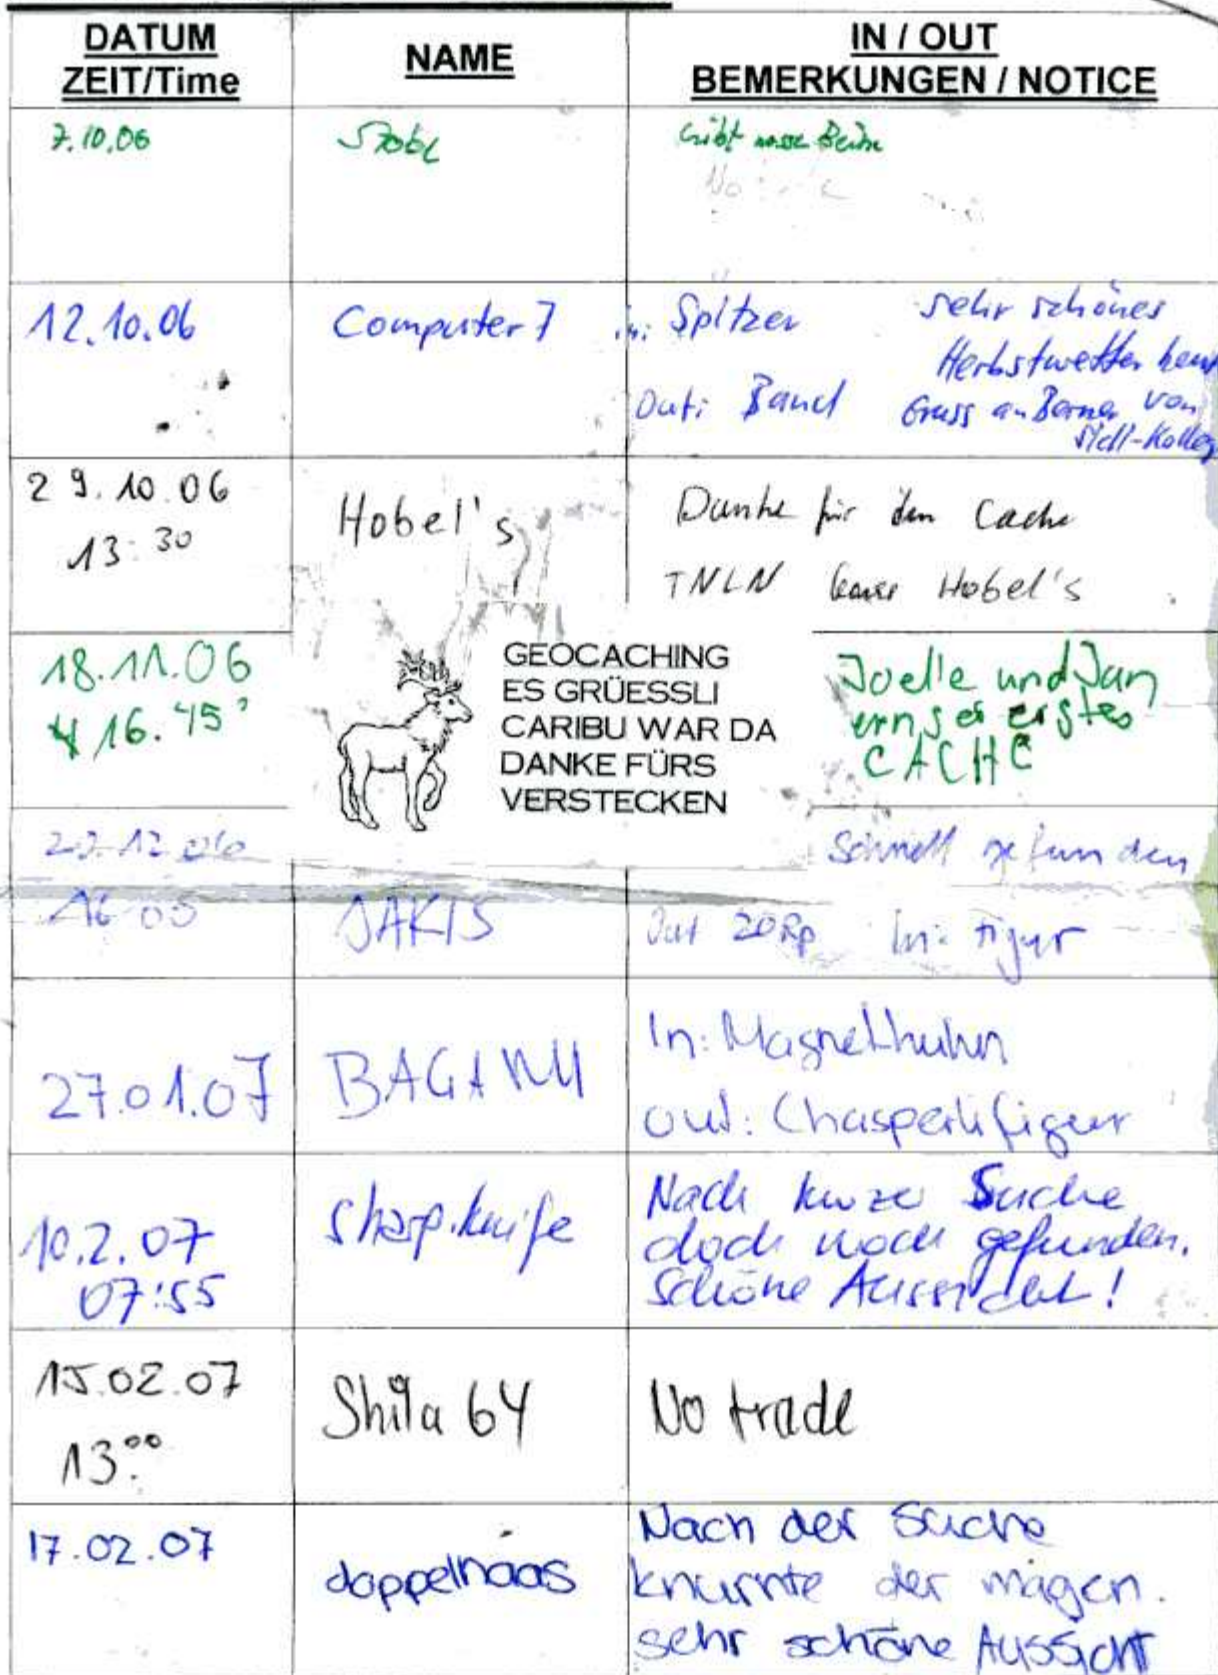 DATUM
ZEIT/Time
NAME
IN / OUT
BEMERKUNGEN / NOTICE
7.10.06
nasse Beine
12.10.06
Computer 7
in: Spitzer
sehr schönes
Herbstwetter heut
Out: Band
Gruss an Berner von
29.10.06
13:30
Hobel's
Danke für den Cache
TNLN Hobel's
18.11.06
16.45
GEOCACHING
ES GRÜESSLI
CARIBU WAR DA
DANKE FÜRS
VERSTECKEN
Joelle und Jan
erstes
CACHE
12.06
schnell gefunden
16:05
JAKIS
Out 20 Rp In: Figur
27.01.07
BAGANU
In: Magnethuhn
out: Chasperlifigur
10.2.07
07:55
sharp.knife
Nach kurzer Suche
doch noch gefunden.
Schöne Aussicht!
15.02.07
13.00
Shila 64
No trade
17.02.07
doppelhaas
Nach der Suche
knurrte der magen.
sehr schöne Aussicht